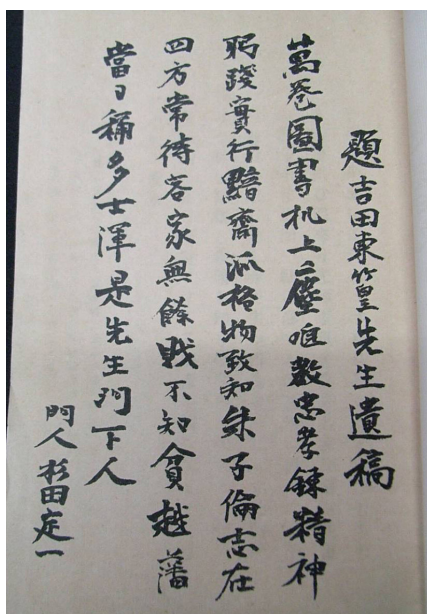 題吉田東篁先生遺稿
萬卷圖書机上塵唯教忠孝錬精神
躬踐實行黯齋派格物致知朱子倫志在
四方常待客家無餘財不知貧越藩
當日稱多士渾是先生門下人
門人杉田定一